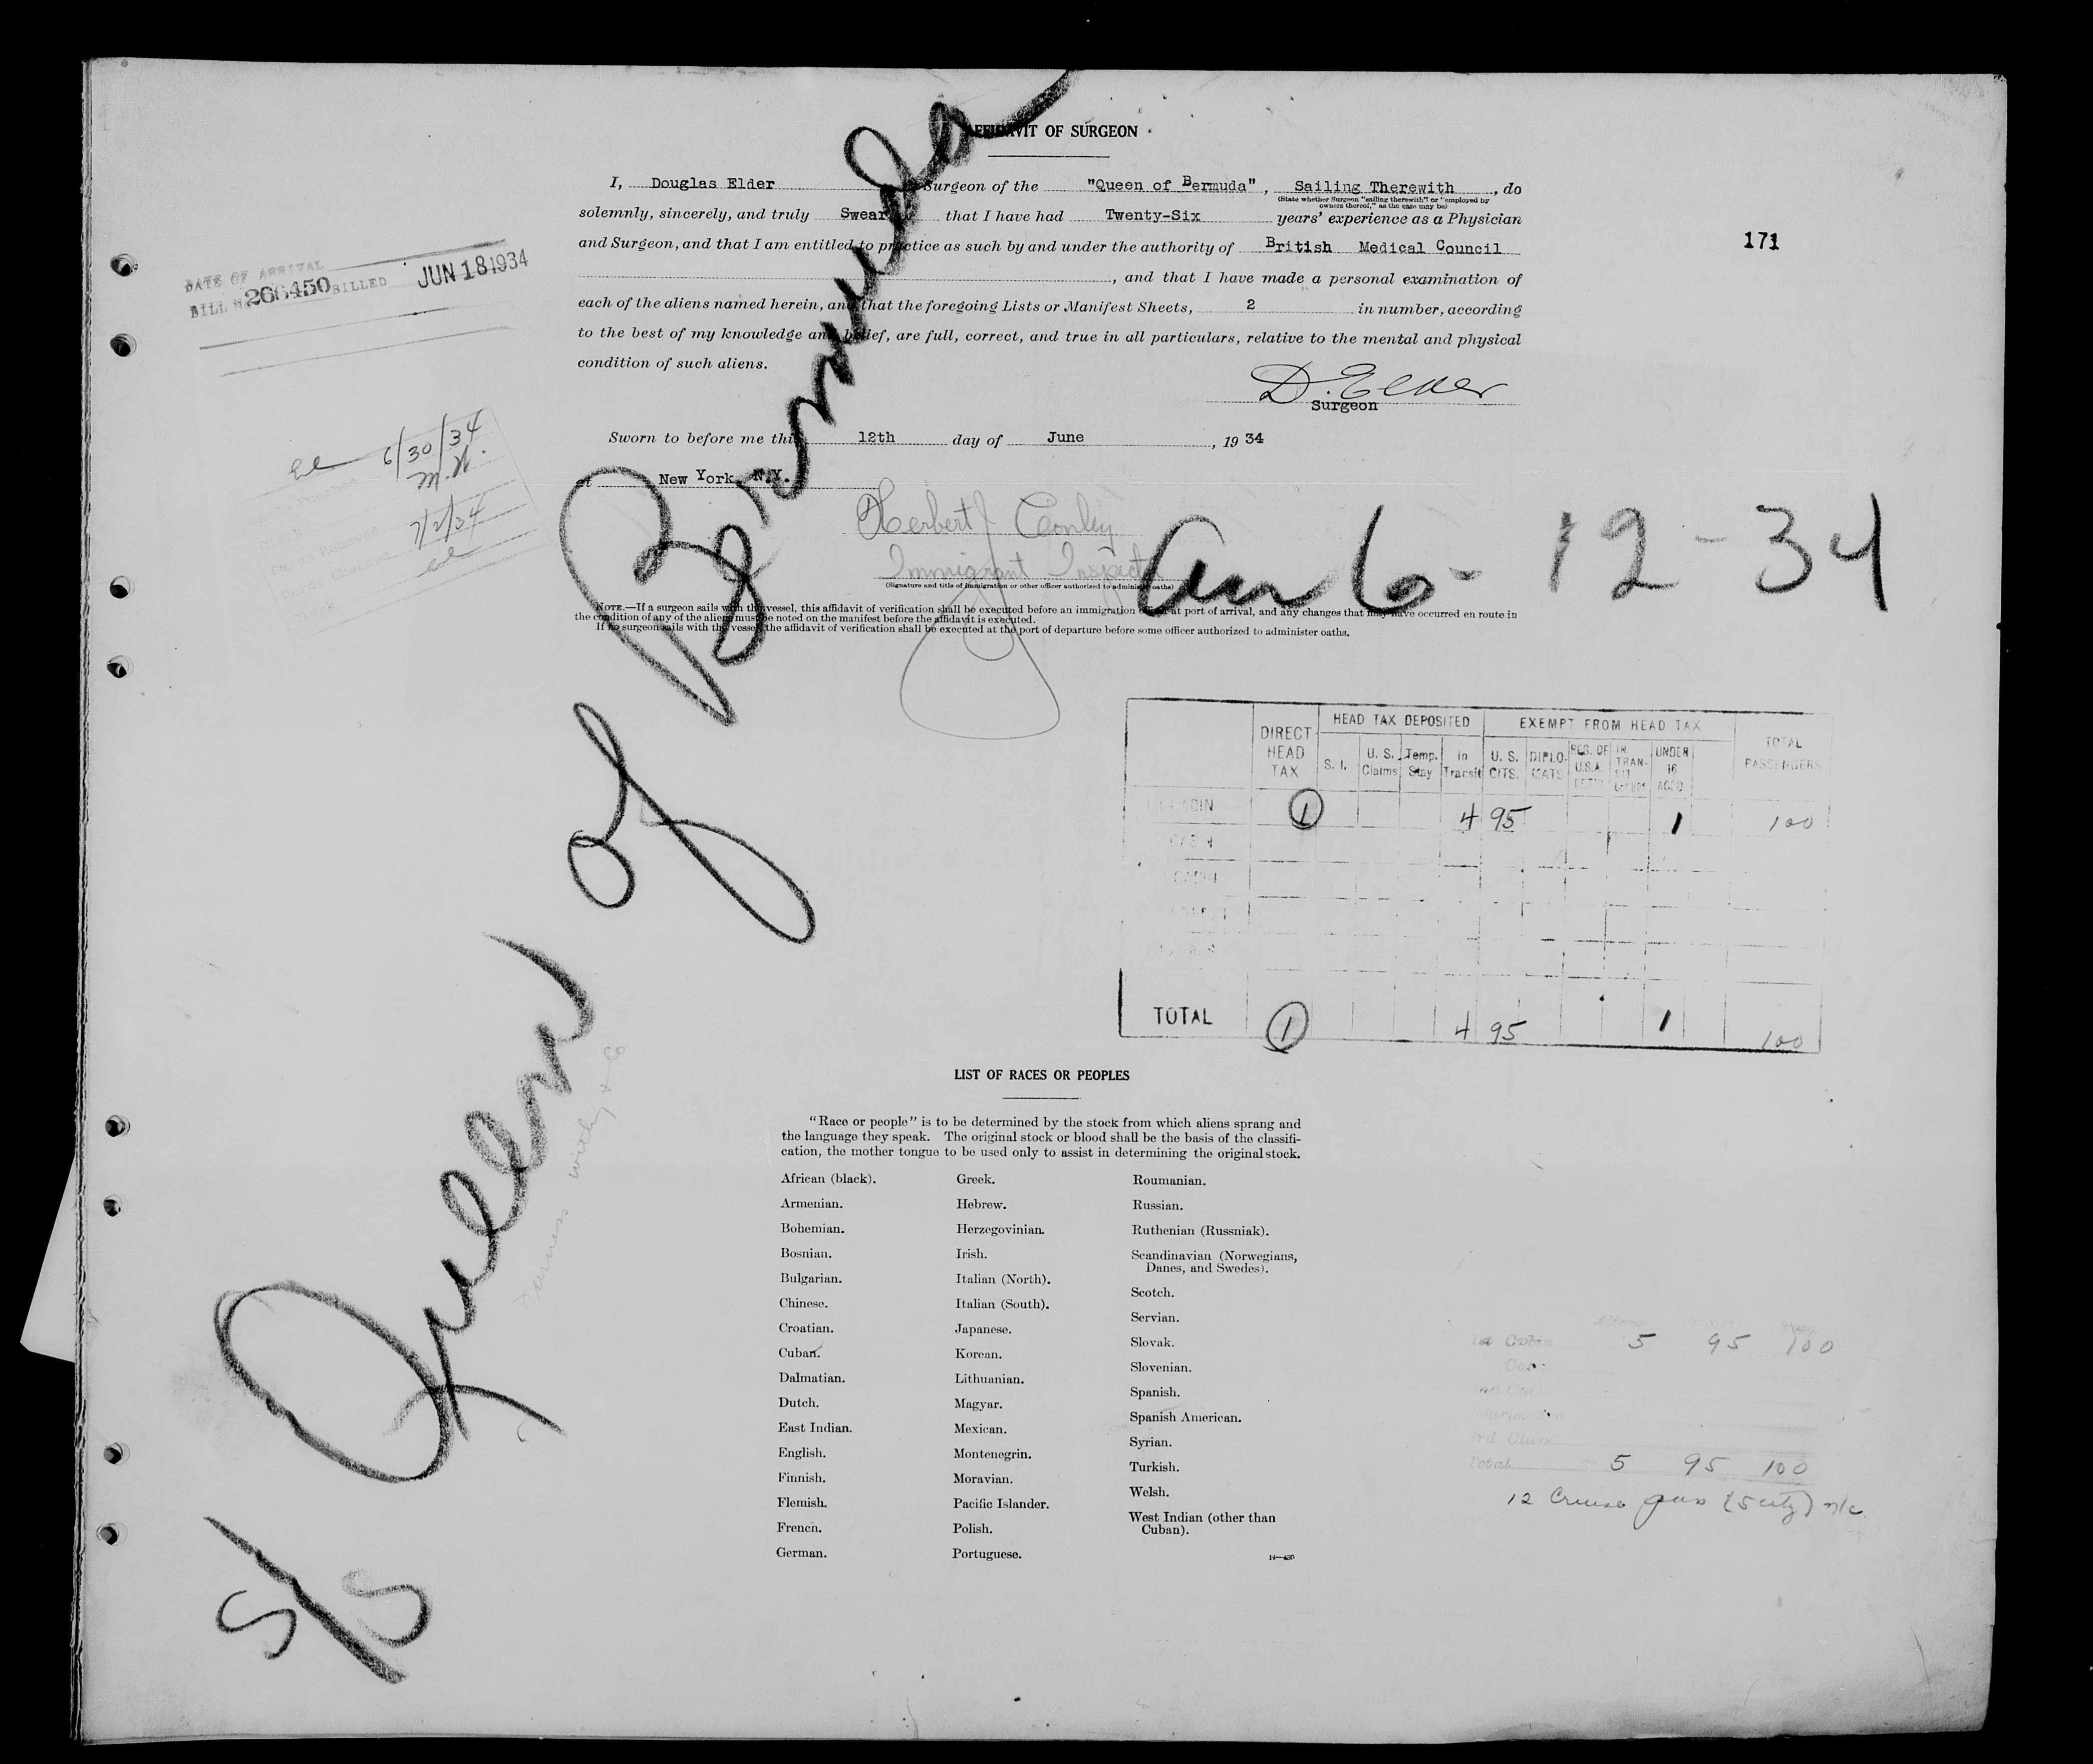 AFFIDAVIT OF SURGEON
I, Douglas Elder Surgeon of the "Queen of Bermuda", Sailing Therewith, do
(State whether Surgeon "sailing therewith" or "employed by
owners thereof," as the case may be)
solemnly, sincerely, and truly Swear that I have had Twenty-Six years' experience as a Physician
and Surgeon, and that I am entitled to practice as such by and under the authority of British Medical Council
, and that I have made a personal examination of
each of the aliens named herein, and that the foregoing Lists or Manifest Sheets, 2 in number, according
to the best of my knowledge and belief, are full, correct, and true in all particulars, relative to the mental and physical
condition of such aliens.
D. Elder
Surgeon
Sworn to before me this 12th day of June, 1934
at New York, N.Y.
Herbert J Conley
Immigrant Inspector
(Signature and title of immigration or other officer authorized to administer oaths)
NOTE.—If a surgeon sails with the vessel, this affidavit of verification shall be executed before an immigration officer at port of arrival, and any changes that may have occurred en route in
the condition of any of the aliens must be noted on the manifest before the affidavit is executed.
If no surgeon sails with the vessel, the affidavit of verification shall be executed at the port of departure before some officer authorized to administer oaths.
171
DATE OF ARRIVAL
BILL No. 266450 BILLED JUN 18 1934
6/30/34
M.K.
7/2/34
S/S Queen of Bermuda
Arr 6-12-34
Furness Withy & Co
DIRECT HEAD TAX HEAD TAX DEPOSITED EXEMPT FROM HEAD TAX TOTAL PASSENGERS
S. I. U. S. Claims Temp. Stay In Transit U. S. CITS. DIPLOMATS RES. OF U.S.A. IN TRANSIT UNDER 16 ACCO.
CABIN 1 4 95 1 100
CABIN
TOTAL 1 4 95 1 100
LIST OF RACES OR PEOPLES
"Race or people" is to be determined by the stock from which aliens sprang and
the language they speak. The original stock or blood shall be the basis of the classifi-
cation, the mother tongue to be used only to assist in determining the original stock.
African (black).
Armenian.
Bohemian.
Bosnian.
Bulgarian.
Chinese.
Croatian.
Cuban.
Dalmatian.
Dutch.
East Indian.
English.
Finnish.
Flemish.
French.
German.
Greek.
Hebrew.
Herzegovinian.
Irish.
Italian (North).
Italian (South).
Japanese.
Korean.
Lithuanian.
Magyar.
Mexican.
Montenegrin.
Moravian.
Pacific Islander.
Polish.
Portuguese.
Roumanian.
Russian.
Ruthenian (Russniak).
Scandinavian (Norwegians,
Danes, and Swedes).
Scotch.
Servian.
Slovak.
Slovenian.
Spanish.
Spanish American.
Syrian.
Turkish.
Welsh.
West Indian (other than
Cuban).
1st Cabin 5 95 100
3rd Class
Total 5 95 100
12 Cruise pass